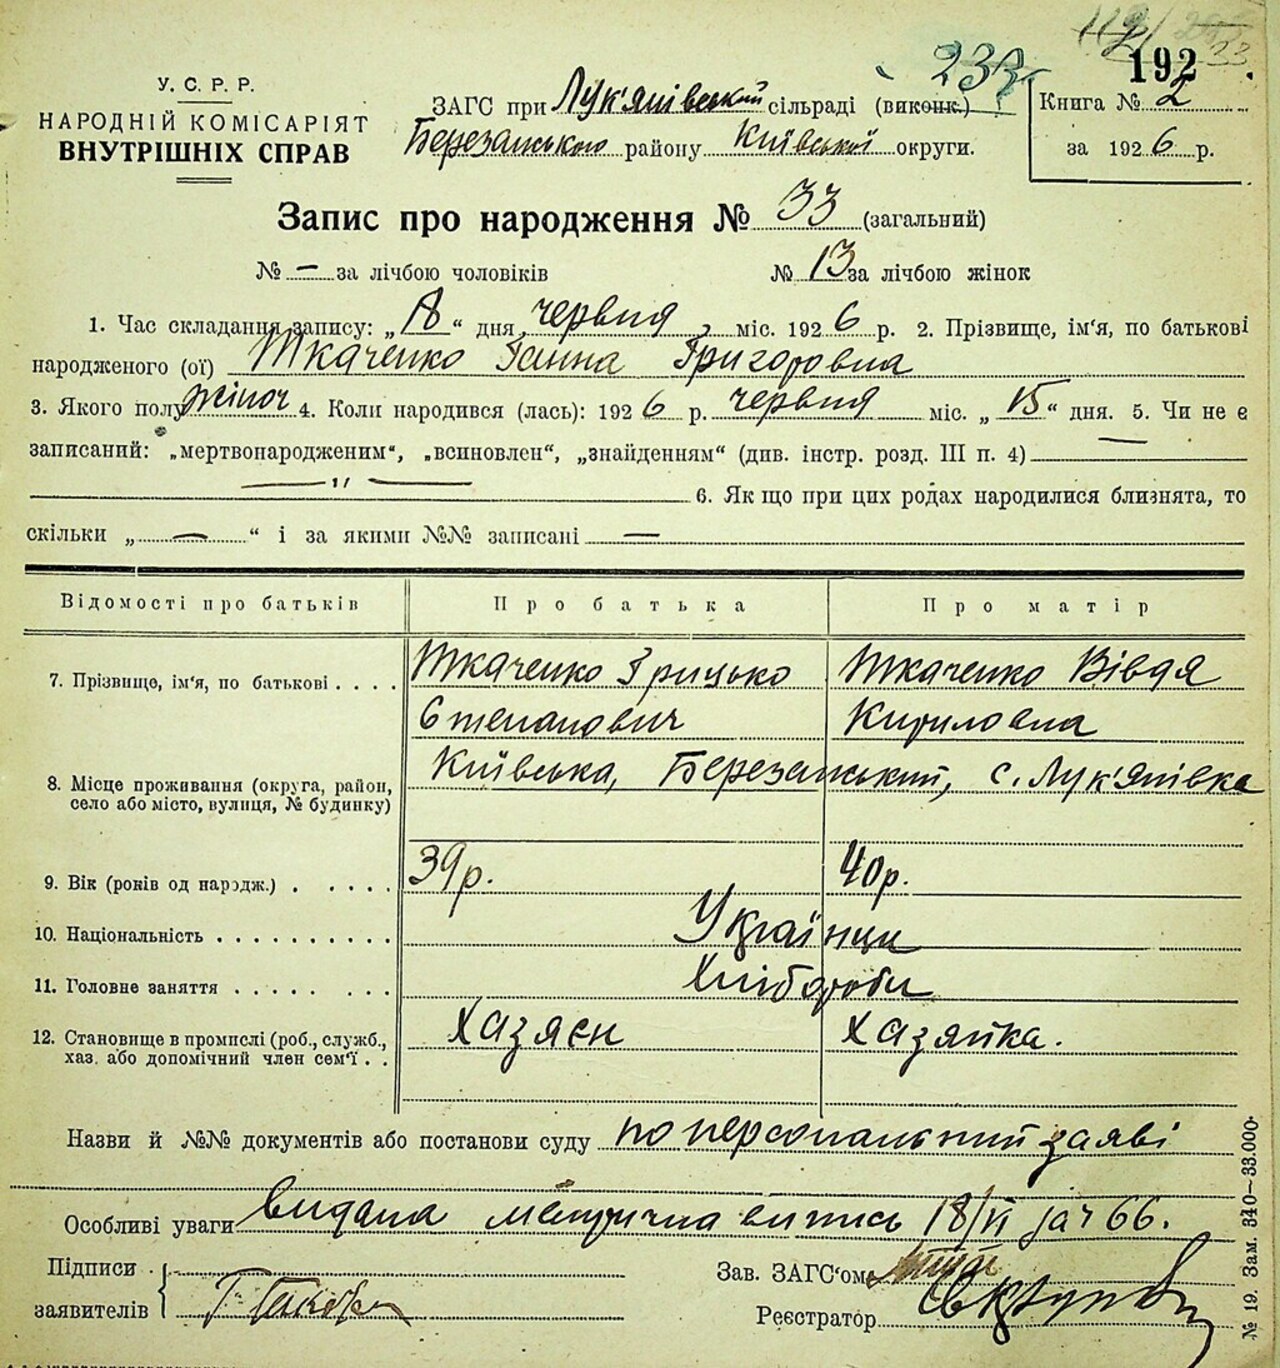 192
У. С. Р. Р.
НАРОДНІЙ КОМІСАРІЯТ
ВНУТРІШНІХ СПРАВ
ЗАГС при Лук'янівський сільраді (виконк.)
Березанського району Київської округи.
Книга № 2
за 1926 р.
Запис про народження № 33 (загальний)
№ — за лічбою чоловіків № 13 за лічбою жінок
1. Час складання запису: „18“ дня червня міс. 1926 р. 2. Прізвище, ім'я, по батькові
народженого (ої) Ткаченко Ганна Григоровна
3. Якого полу жіноч 4. Коли народився (лась): 1926 р. червня міс. „15“ дня. 5. Чи не є
записаний: „мертвонародженим“, „всиновлен“, „знайденням“ (див. інстр. розд. III п. 4) —
— " — 6. Як що при цих родах народилися близнята, то
скільки „ — “ і за якими №№ записані —
Відомості про батьків Про батька Про матір
7. Прізвище, ім'я, по батькові . . . . Ткаченко Грицько Ткаченко Вівдя
Степанович Кириловна
8. Місце проживання (округа, район, село або місто, вулиця, № будинку) Київська, Березанський, с. Лук'янівка
9. Вік (років од народж.) . . . . . 39 р. 40 р.
10. Національність . . . . . . . . . . Українци
11. Головне заняття . . . . . . . . Хлібороби
12. Становище в промислі (роб., служб., хаз. або допомічний член сем'ї . . Хазяєн Хазяйка.
Назви й №№ документів або постанови суду по персональний заяві
Особливі уваги видана метрична випись 18/VI за ч 66.
Підписи
заявителів
Зав. ЗАГС'ом
Реєстратор
№ 19. Зам. 340—33.000.